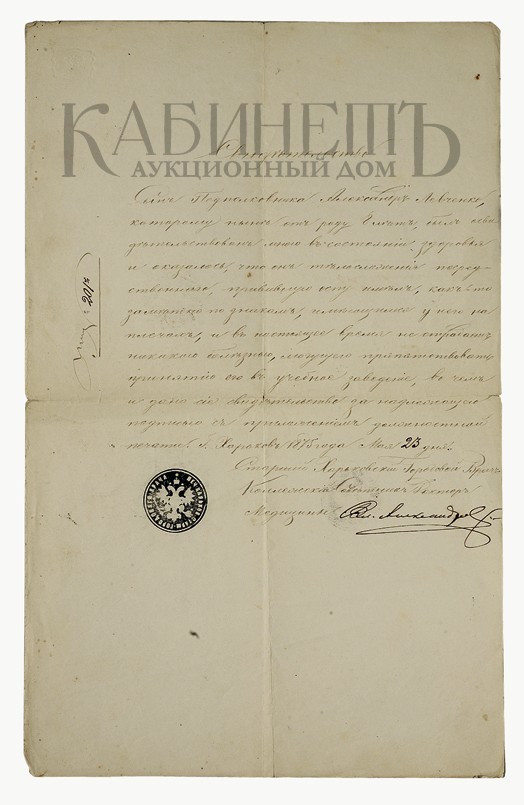 КАБИНЕТЪ
АУКЦИОННЫЙ ДОМ
Свидѣтельство
Сынъ Подполковника Александръ Левченко,
которому нынѣ отъ роду 8 лѣтъ, былъ осви-
дѣтельствованъ мною въ состоянiи здоровья
и оказалось, что онъ тѣлосложенiя посред-
ственнаго, прививную оспу имѣлъ, какъ то
замѣтно по знакамъ, имѣющимся у него на
плечахъ, и въ настоящее время не страдаетъ
никакою болѣзнью, могущею препятствовать
принятiю его въ учебное заведенiе, въ чемъ
и дано сiе свидѣтельство за надлежащею
подписью съ приложенiемъ должностной
печати. Г. Харьковъ 1875 года Мая 23 дня.
Старшiй Харьковскiй Городовой Врачъ
Коллежскiй Совѣтникъ Докторъ
Медицины